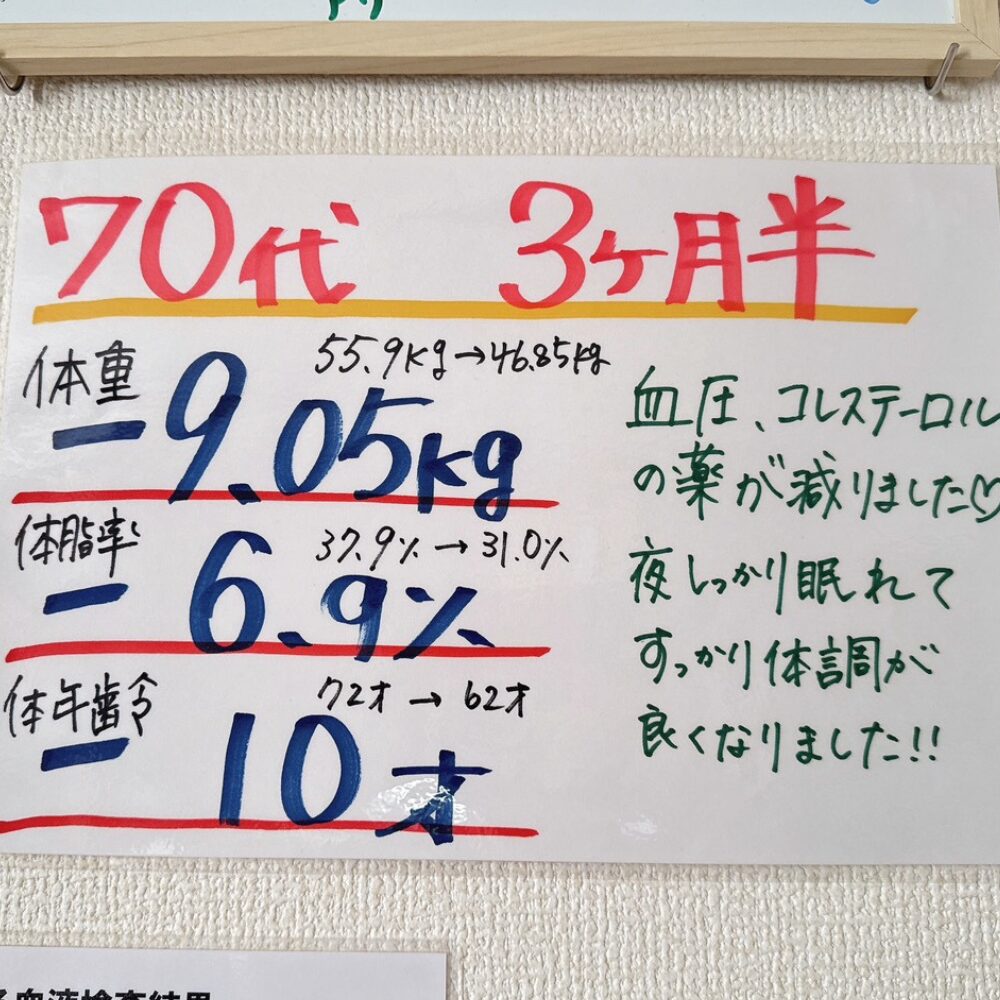 70代 3ヶ月半
体重 55.9kg→46.85kg
-9.05kg
体脂率 37.9%→31.0%
-6.9%
体年齢 72才→62才
-10才
血圧、コレステロール
の薬が減りました♡
夜しっかり眠れて
すっかり体調が
良くなりました!!
血液検査結果